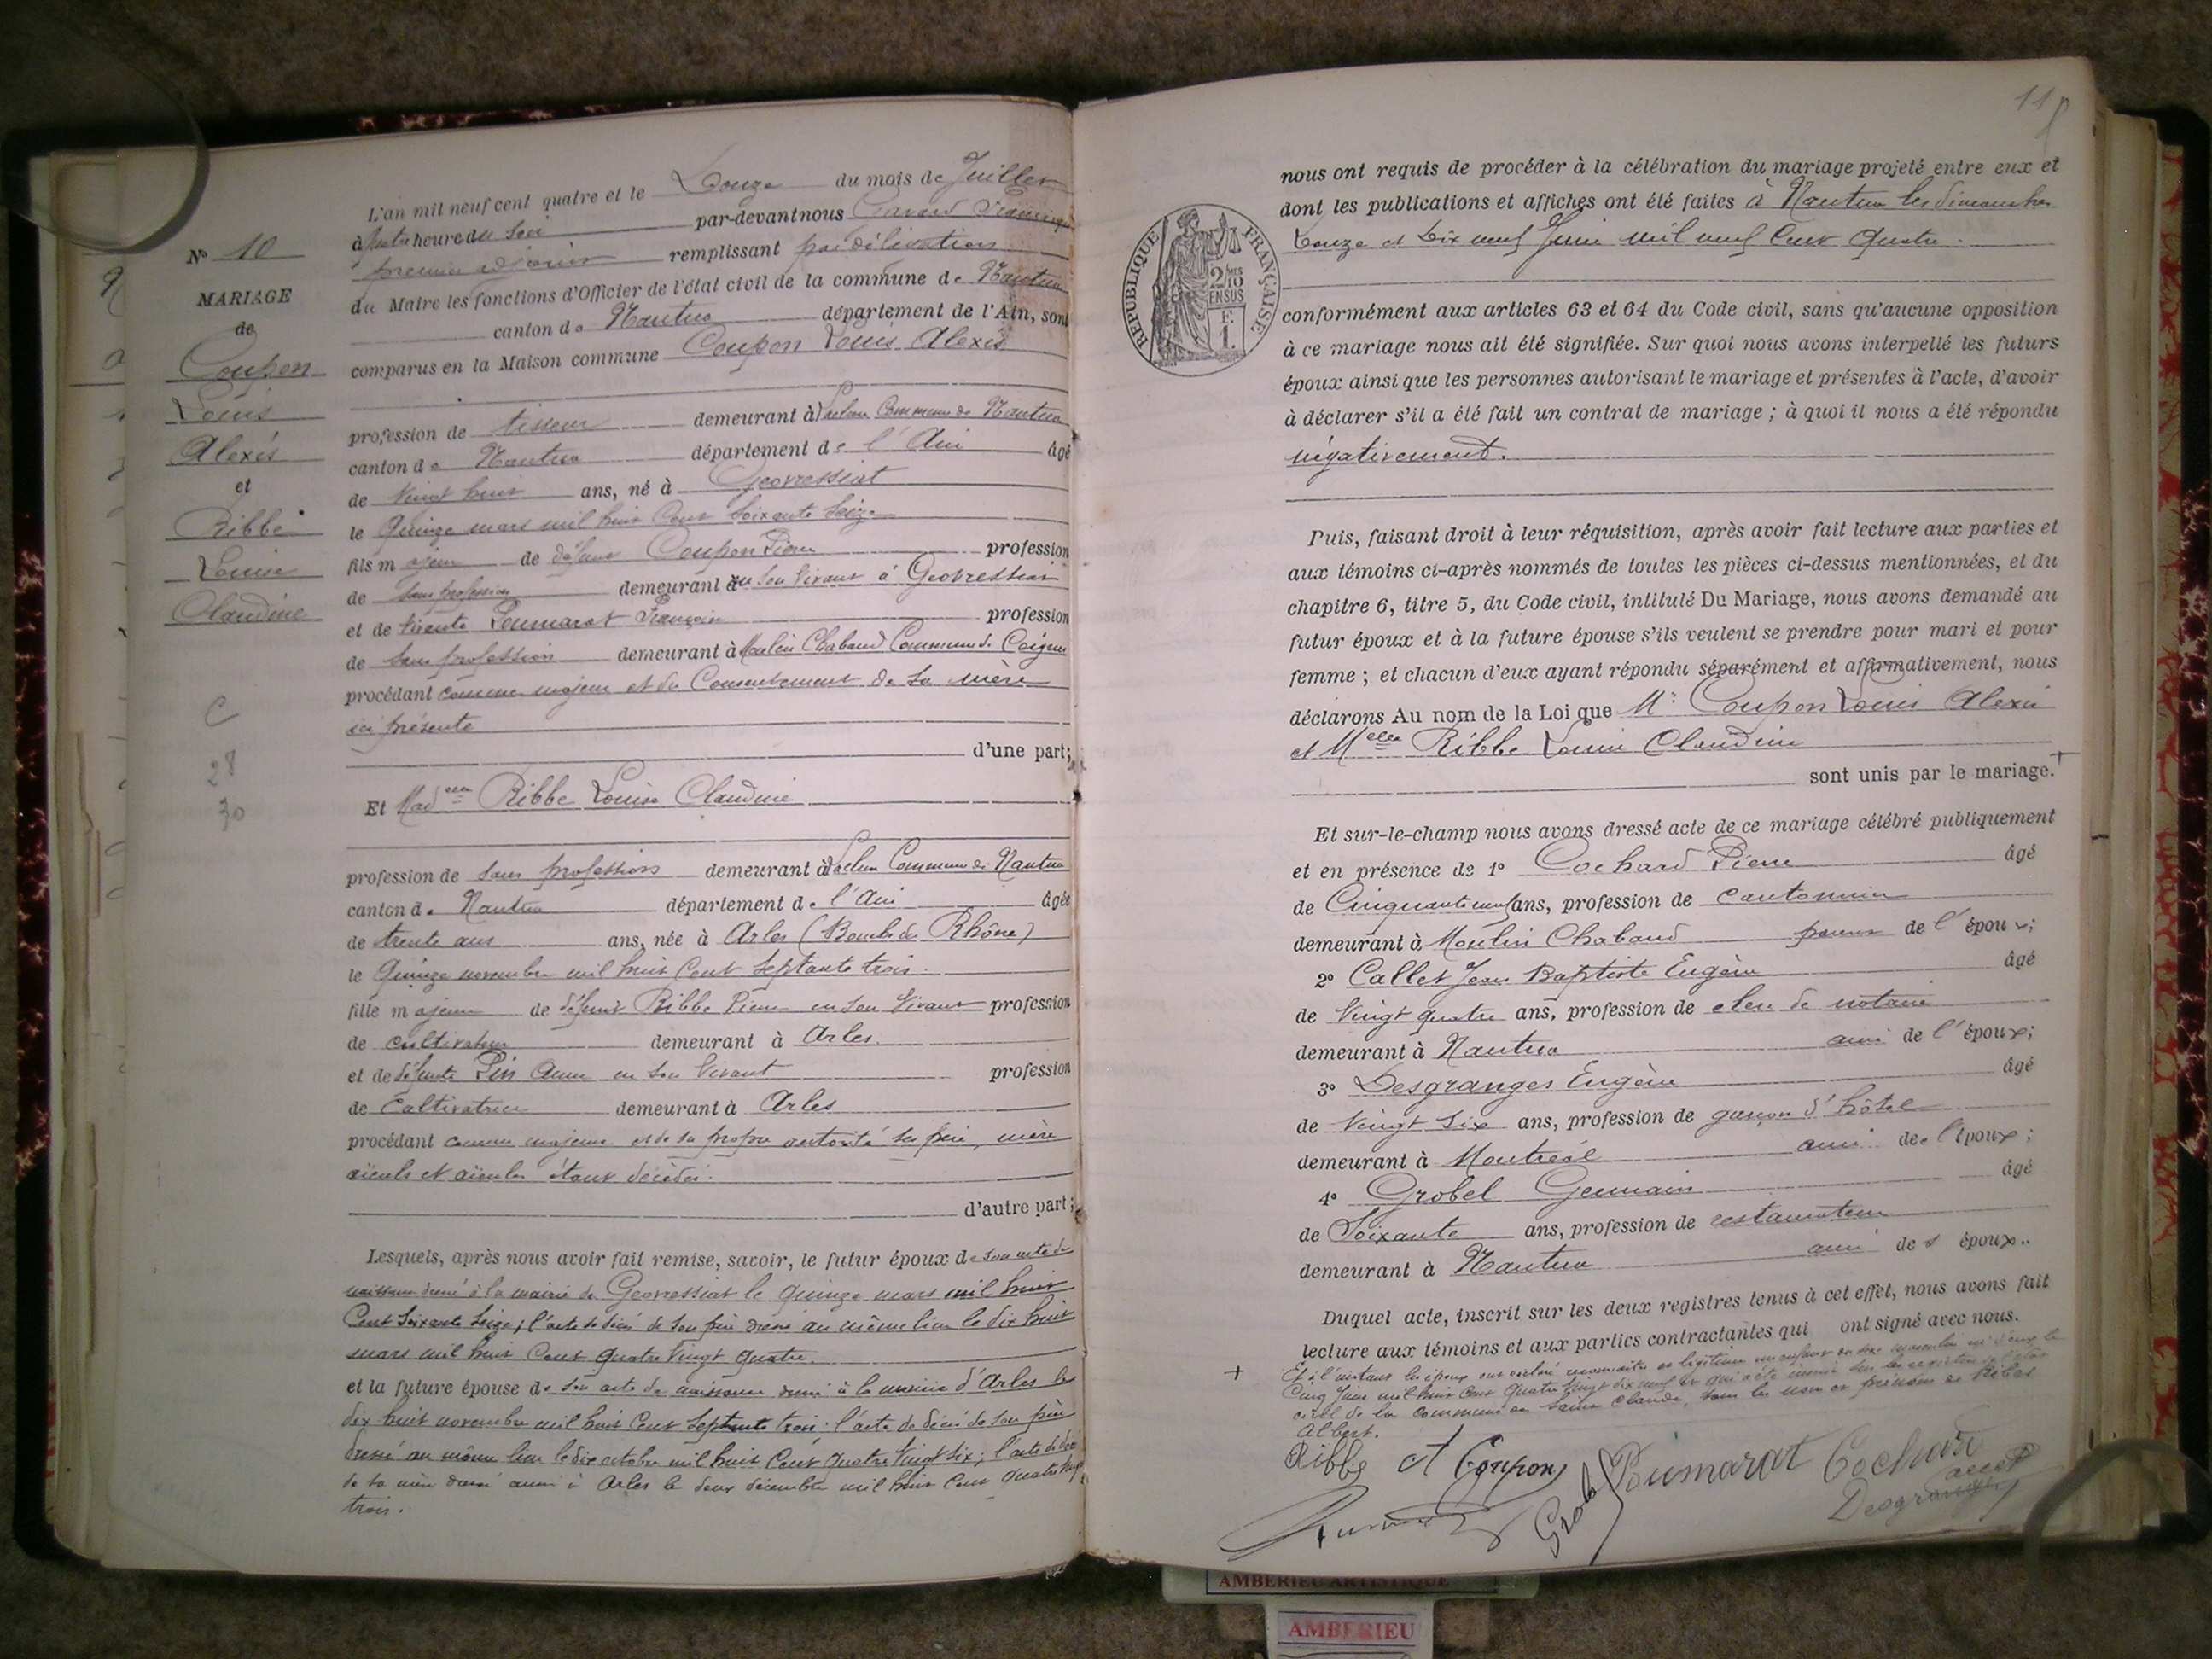 L'an mil neuf cent quatre et le Douze du mois de Juillet
à quatre heure du soir par-devant nous
premier adjoint remplissant par délégation
du Maire les fonctions d'Officier de l'état civil de la commune de Nantua
canton de Nantua département de l'Ain, sont
comparus en la Maison commune Coupon Louis Alexis
profession de tisseur demeurant à Commune de Nantua
canton de Nantua département de l'Ain âgé
de vingt huit ans, né à Geovressiat
le Quinze mars mil huit Cent Soixante Seize
fils majeur de défunt Coupon Pierre profession
de sans profession demeurant en son vivant à Geovressiat
et de vivante Poumarat Françoise profession
de sans profession demeurant à Moulin Chabaud Commune de Ceignes
procédant comme majeur et du Consentement de sa mère
ici présente
d'une part;
Et Mad elle Ribbe Louise Claudine
profession de sans profession demeurant à Commune de Nantua
canton de Nantua département de l'Ain âgée
de trente ans ans, née à Arles (Bouches du Rhône)
le Quinze novembre mil huit Cent Septante trois.
fille majeure de défunt Ribbe Pierre en son vivant profession
de cultivateur demeurant à Arles.
et de défunte Pin Anne en son vivant profession
de Cultivatrice demeurant à Arles
procédant comme majeure et de sa propre autorité ses père, mère
aïeuls et aïeules étant décédés.
d'autre part;
Lesquels, après nous avoir fait remise, savoir, le futur époux de son acte de
naissance dressé à la mairie de Geovressiat le quinze mars mil huit
Cent Soixante Seize; l'acte de décès de son père dressé au même lieu le dix huit
mars mil huit Cent quatre Vingt quatre.
et la future épouse de son acte de naissance dressé à la mairie d'Arles le
dix huit novembre mil huit Cent Septante trois; l'acte de décès de son père
dressé au même lieu le dix octobre mil huit Cent quatre Vingt Six; l'acte de décès
de sa mère dressé aussi à Arles le deux décembre mil huit Cent quatre Vingt
trois.
N° 10
MARIAGE
de
Coupon
Louis
Alexis
et
Ribbe
Louise
Claudine
C
28
30
11
RÉPUBLIQUE FRANÇAISE
2/10
EN SUS
F.
1.
nous ont requis de procéder à la célébration du mariage projeté entre eux et
dont les publications et affiches ont été faites à Nantua les dimanches
Douze et Dix neuf Juin mil neuf Cent Quatre.
conformément aux articles 63 et 64 du Code civil, sans qu'aucune opposition
à ce mariage nous ait été signifiée. Sur quoi nous avons interpellé les futurs
époux ainsi que les personnes autorisant le mariage et présentes à l'acte, d'avoir
à déclarer s'il a été fait un contrat de mariage ; à quoi il nous a été répondu
négativement.
Puis, faisant droit à leur réquisition, après avoir fait lecture aux parties et
aux témoins ci-après nommés de toutes les pièces ci-dessus mentionnées, et du
chapitre 6, titre 5, du Code civil, intitulé Du Mariage, nous avons demandé au
futur époux et à la future épouse s'ils veulent se prendre pour mari et pour
femme ; et chacun d'eux ayant répondu séparément et affirmativement, nous
déclarons Au nom de la Loi que Mr Coupon Louis Alexis
et Melle Ribbe Louise Claudine
sont unis par le mariage. +
Et sur-le-champ nous avons dressé acte de ce mariage célébré publiquement
et en présence de 1° Cochard Pierre âgé
de Cinquante neuf ans, profession de cantonnier
demeurant à Moulin Chabaud de l'époux;
2° Callet Jean Baptiste Eugène âgé
de Vingt quatre ans, profession de clerc de notaire
demeurant à Nantua ami de l'époux;
3° Desgranges Eugène âgé
de Vingt Six ans, profession de garçon d'hôtel
demeurant à Montréal ami de l'époux;
4° Grobel Germain âgé
de Soixante ans, profession de restaurateur
demeurant à Nantua ami des époux..
Duquel acte, inscrit sur les deux registres tenus à cet effet, nous avons fait
lecture aux témoins et aux parties contractantes qui ont signé avec nous.
+ Et à l'instant les époux ont déclaré reconnaître et légitimer un enfant du sexe masculin né d'eux le
Cinq Juin mil huit Cent Quatre Vingt dix neuf et qui a été inscrit sur les registres de l'état
civil de la Commune de Saint Claude, sous les nom et prénom de Ribbe
Albert.
Ribbe et Coupon Poumarat Cochard
Grobel
Desgranges
AMBERIEU ARTISTIQUE
AMBERIEU